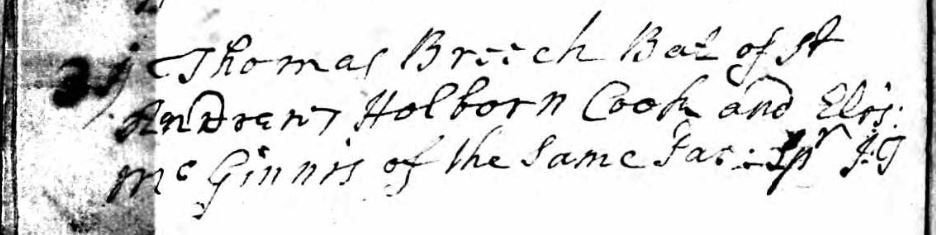 Thomas Breech Bat of St
Andrews Holborn Cook and Eliz:
Mc Ginnis of the Same Sp: J:G